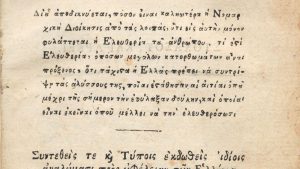 Διὰ ἀποδεικνύεται, πόσον εἶναι καλητέρα ἡ Νομαρ-
χικὴ Διοίκησις ἀπὸ τὰς λοιπάς· ὅτι εἰς αὐτὴν μόνον
φυλάττεται ἡ Ἐλευθερία τοῦ ἀνθρώπου· τί ἐστὶ
Ἐλευθερία· ὁπόσων μεγάλων κατορθωμάτων εἶναι
πρόξενος· ὅτι τάχιστα ἡ Ἑλλὰς πρέπει νὰ συντρίψῃ
τὰς ἁλύσσους της, ποῖαι ἐστάθησαν αἱ αἰτίαι ὁποῦ
μέχρι τῆς σήμερον τὴν ἐφύλαξαν δούλην, καὶ ὁποῖαι
εἶναι ἐκεῖναι ὁποῦ μέλλει νὰ τὴν ἐλευθερώσωσι·
Συντεθείς τε καὶ Τύποις ἐκδοθεὶς ἰδίοις
ἀναλώμασι πρὸς ὠφέλειαν τῶν Ἑλλήνων